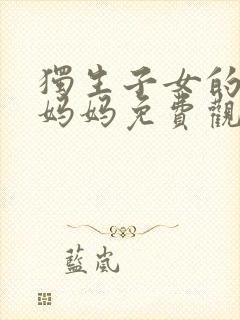 獨生子女的
妈妈免費觀
藍嵐